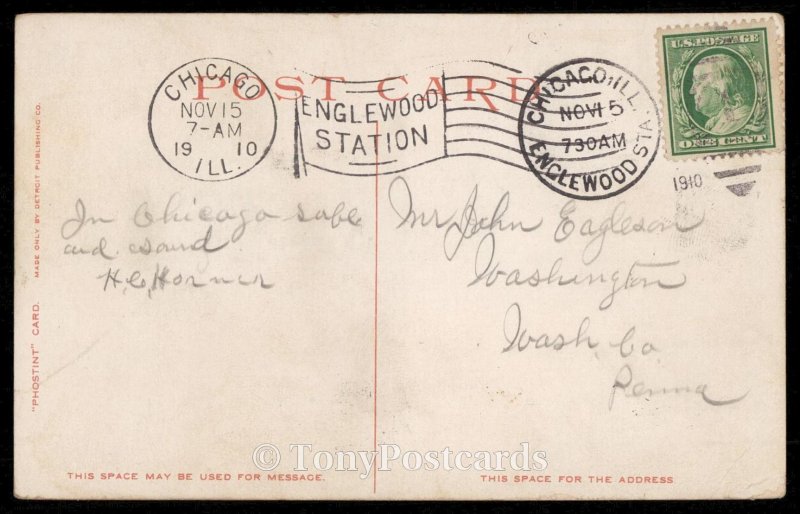 POST CARD
CHICAGO
NOV 15
7-AM
1910
ILL.
ENGLEWOOD
STATION
CHICAGO, ILL.
NOV 15
730AM
ENGLEWOOD STA.
1910
U.S. POSTAGE
ONE CENT
In Chicago safe
and sound
H.C. Horner
Mr John Eagleson
Washington
Wash. Co
Penna
"PHOSTINT" CARD. MADE ONLY BY DETROIT PUBLISHING CO.
THIS SPACE MAY BE USED FOR MESSAGE.
THIS SPACE FOR THE ADDRESS
© TonyPostcards